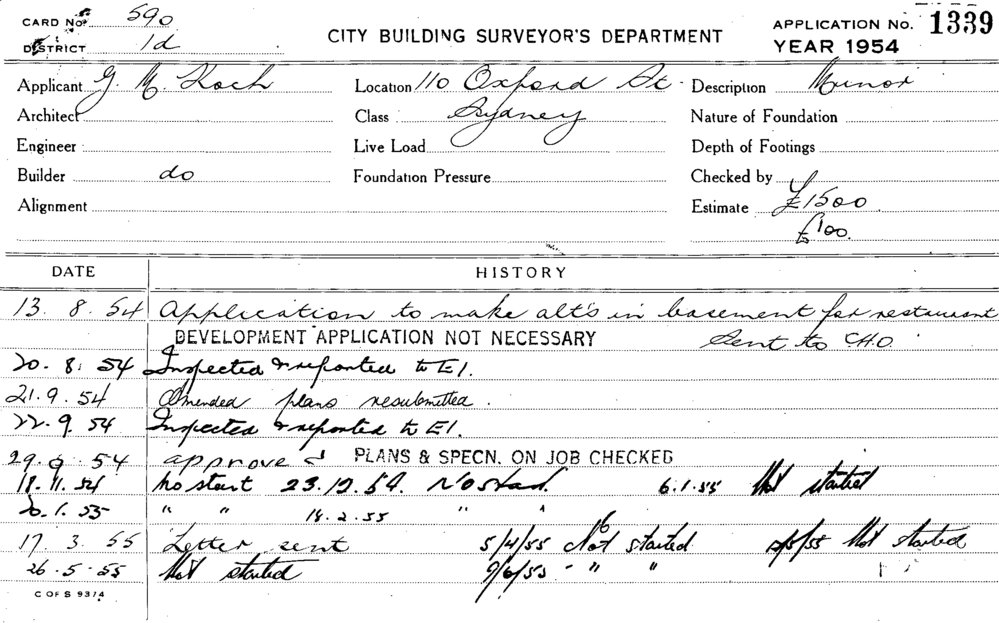 CARD No. 590 CITY BUILDING SURVEYOR'S DEPARTMENT APPLICATION No. 1339
DISTRICT 1d YEAR 1954
Applicant G. M. Koch Location 110 Oxford St Description Minor
Architect Class Sydney Nature of Foundation
Engineer Live Load Depth of Footings
Builder do Foundation Pressure Checked by
Alignment Estimate £1500
£100.
DATE HISTORY
13. 8. 54 Application to make alt's in basement for restaurant
DEVELOPMENT APPLICATION NOT NECESSARY Sent to C.H.O
20. 8. 54 Inspected & reported to E1.
21. 9. 54 Amended plans resubmitted.
22. 9. 54 Inspected & reported to E1.
29. 9. 54 approved PLANS & SPECN. ON JOB CHECKED
18. 11. 54 No start 23.12.54. No start. 6.1.55 Not started
20. 1. 55 " " 18.2.55 " "
17. 3. 55 Letter sent 5/4/55 Not started /5/55 Not started
26. 5. 55 Not started 9/6/55 - " "
C OF S 9374